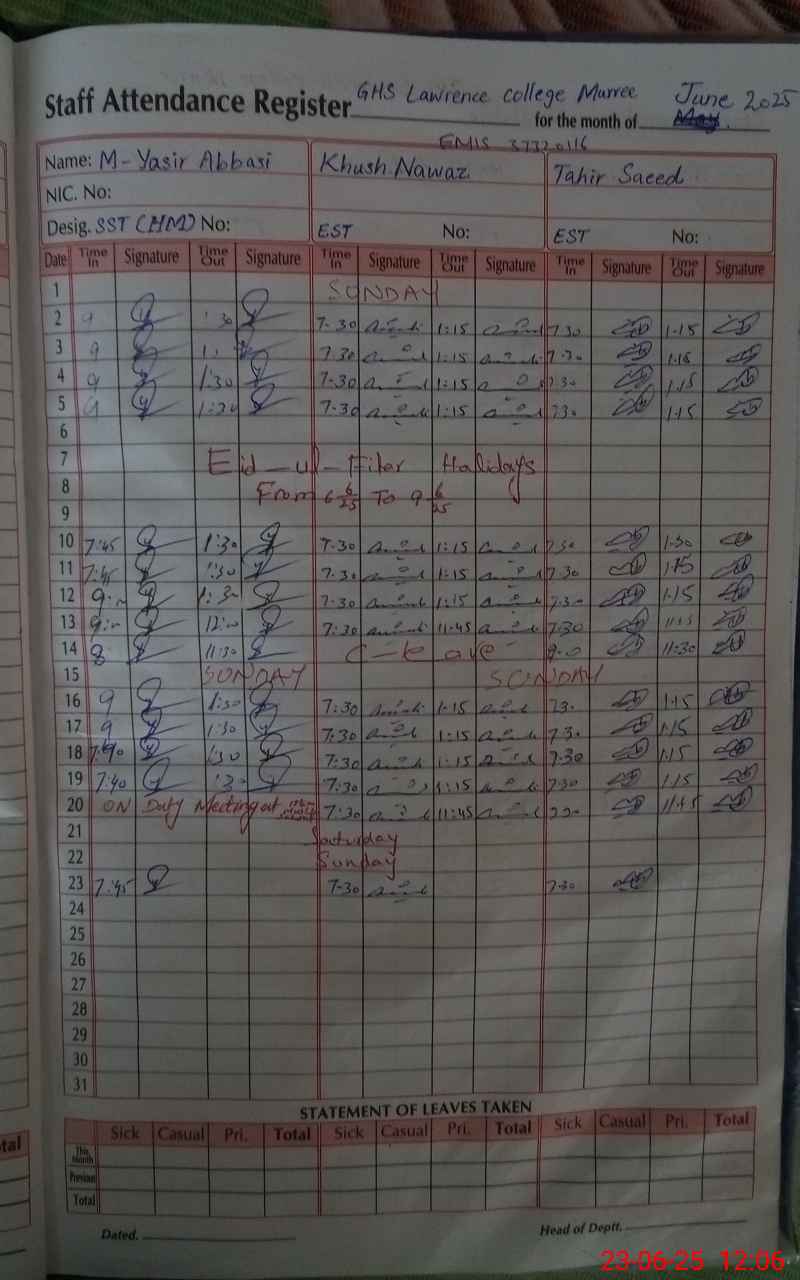 Staff Attendance Register GHS Lawrence college Murree for the month of June 2025
EMIS 37320116
Name: M-Yasir Abbasi Khush Nawaz Tahir Saeed
NIC. No:
Desig. SST (HM) No: EST No: EST No:
Date Time In Signature Time Out Signature Time In Signature Time Out Signature Time In Signature Time Out Signature
1 SUNDAY
2 9 1:30 7-30 1:15 7.30 1-15
3 9 7.30 1:15 7-30 1.15
4 9 1:30 7-30 1:15 7.30 1.15
5 9 7-30 1:15 7.30 1.15
6
7 Eid-ul-Fiter Halidays
8 From 6 6/25 To 9 6/25
9
10 7:45 1:30 7.30 1:15 7.30 1.30
11 7:45 1:30 7.30 1:15 7.30 1.15
12 9 7-30 1:15 7.30 1.15
13 9 12:00 7:30 11:45 7.30
14 8 11:30 C-leave 11:30
15 SUNDAY SUNDAY
16 9 1:30 7:30 1.15 1.15
17 9 1:30 7.30 1:15 7.30 1.15
18 7:40 1:30 7:30 1:15 7.30 1.15
19 7:40 7:30 1:15 7.30 1.15
20 ON Duty Meeting at 7:30 11:45 11.45
21 Saturday
22 Sunday
23 7:45 7-30 7.30
24
25
26
27
28
29
30
31
STATEMENT OF LEAVES TAKEN
Sick Casual Pri. Total Sick Casual Pri. Total Sick Casual Pri. Total
This Month
Previous
Total
Dated. Head of Deptt.
23-06-25 12:06